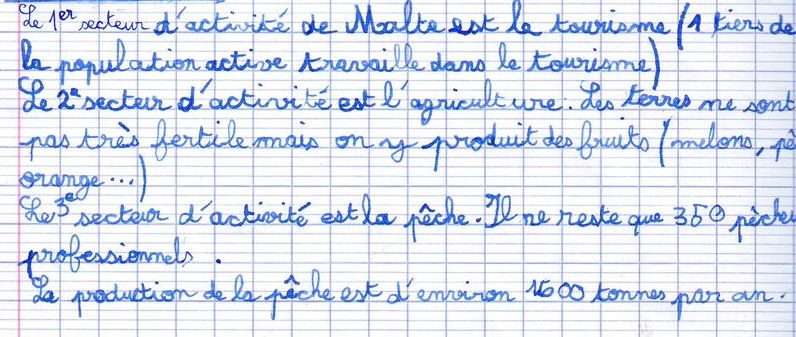 Le 1er secteur d'activité de Malte est le tourisme (1 tiers de
la population active travaille dans le tourisme)
Le 2e secteur d'activité est l'agriculture. Les terres ne sont
pas très fertile mais on y produit des fruits (melons, pê
orange...)
Le 3e secteur d'activité est la pêche. Il ne reste que 350 pêcheu
professionnels.
La production de la pêche est d'environ 1600 tonnes par an.